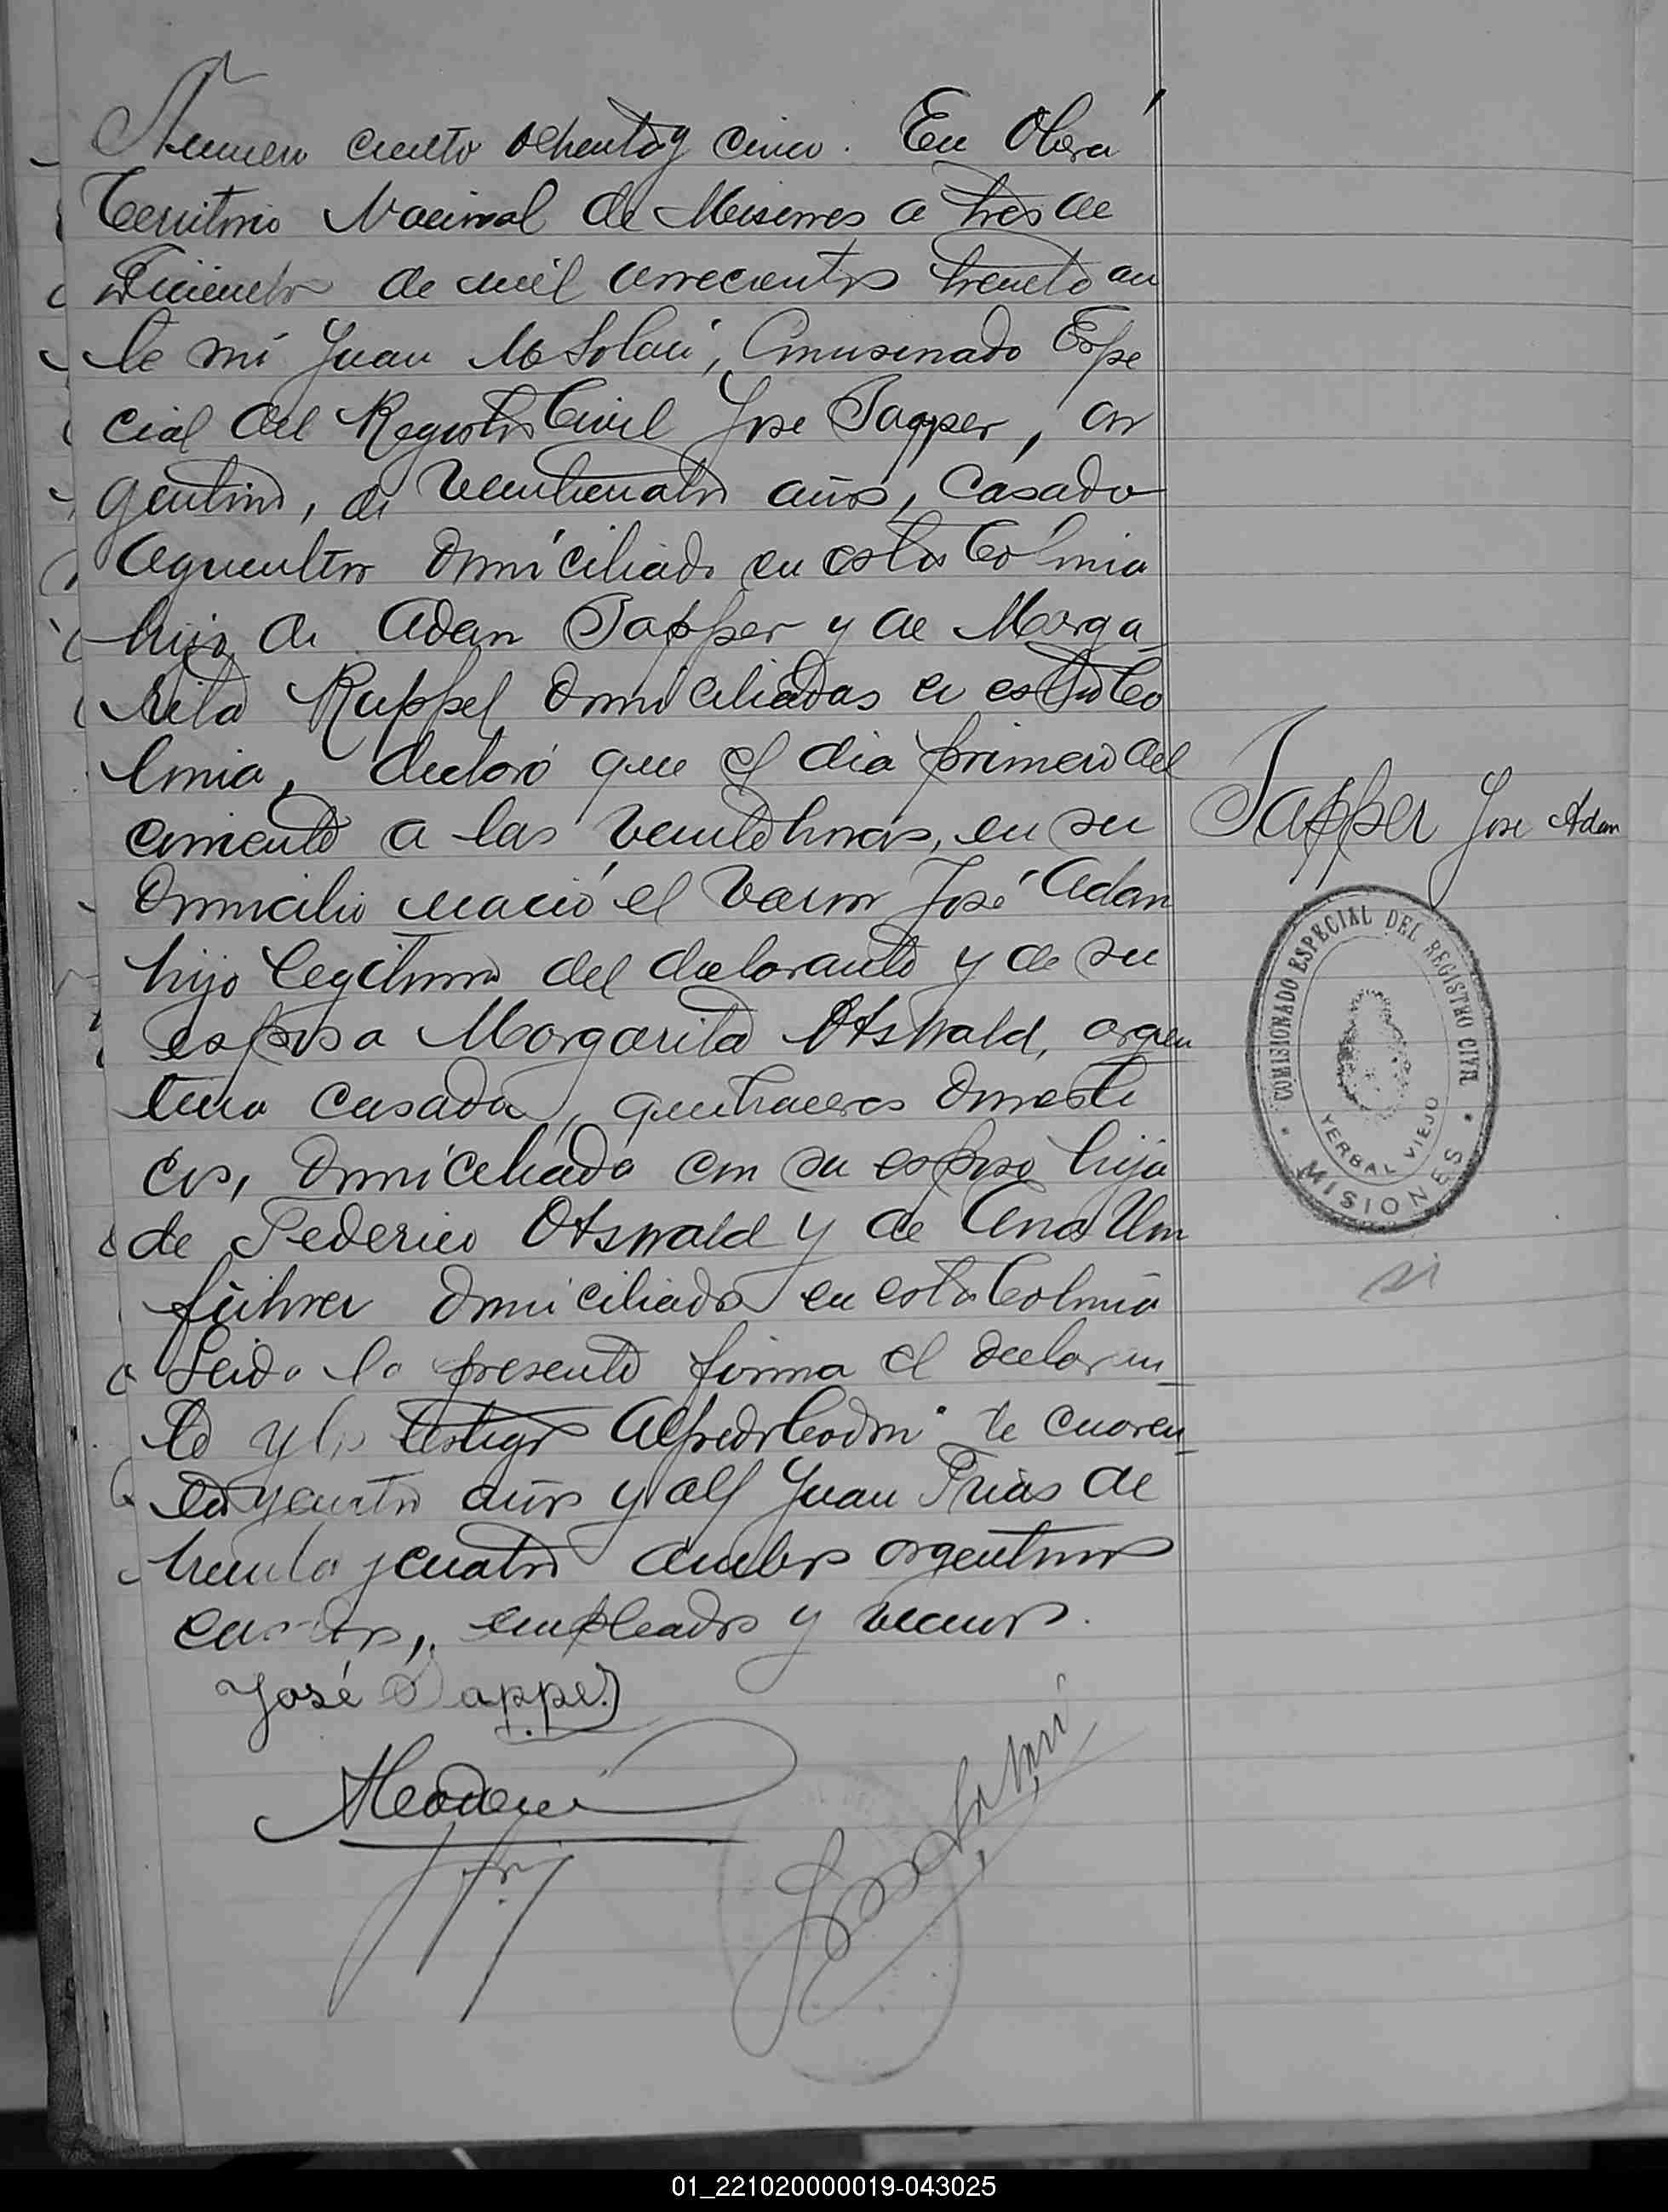 Numero ciento ochenta y cinco. En Oberá
Territorio Nacional de Misiones a tres de
Diciembre de mil novecientos treinta an
te mi Juan M Solari, Comisionado Espe
cial del Registro Civil Jose Tapper, ar
gentino, de veinticuatro años, casado
agricultor domiciliado en esta Colonia
hijo de Adan Tapper y de Marga
rita Ruppel domiciliadas en esta Co
lonia, declaró que el dia primero del
corriente a las veinte horas, en su
domicilio nació el varon José Adan
hijo legitimo del declarante y de su
esposa Margarita Otswald, argen
tina casada, quehaceres domesti
cos, domiciliada con su esposo hija
de Federico Otswald y de Ana Um
führer domiciliada en esta Colonia
Leida la presente firma el declaran
te y los testigos Alfredo de cuaren
ta y cuatro años y Juan Frias de
treinta y cuatro ambos argentinos
casados, empleados y vecinos.
Tapper Jose Adan
COMISIONADO ESPECIAL DEL REGISTRO CIVIL
YERBAL VIEJO
MISIONES
si
José Tapper
01_221020000019-043025